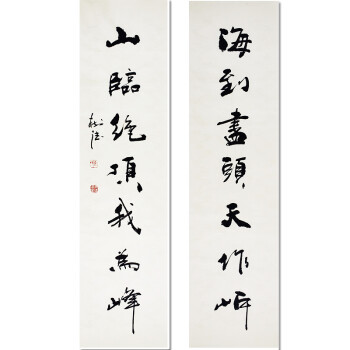 海到盡頭天作岸
山臨絕頂我為峰